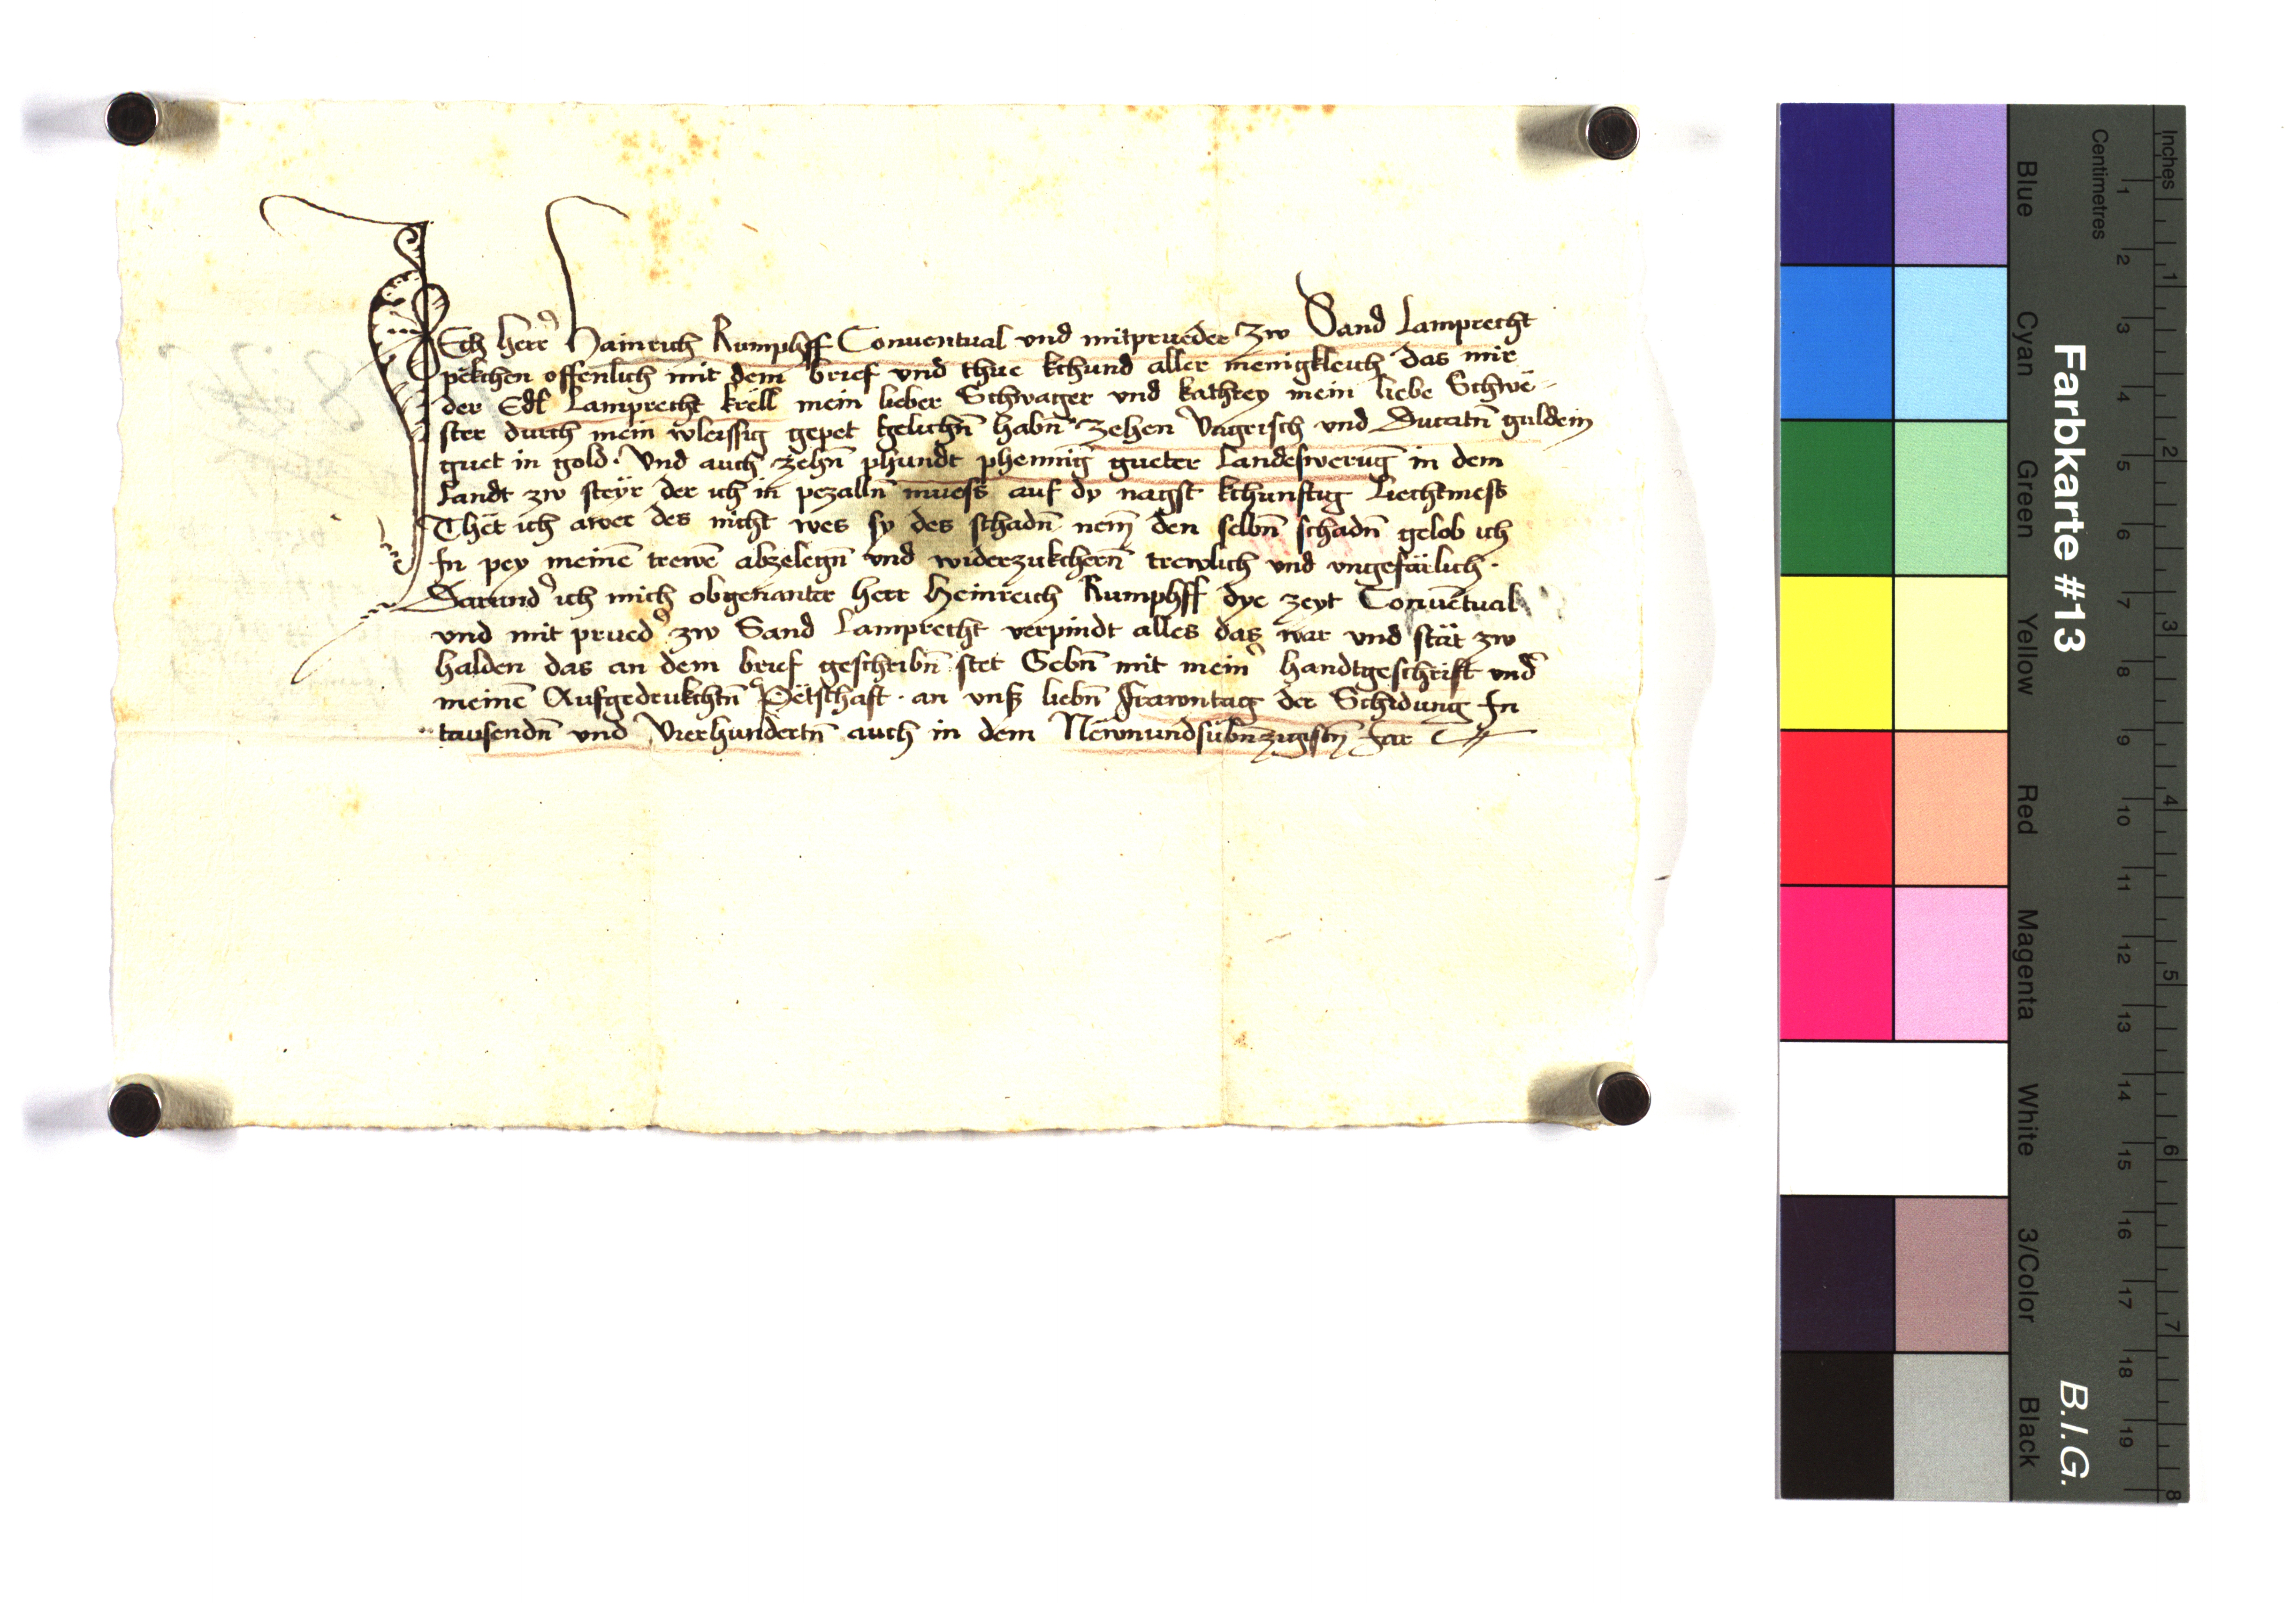 Ich herr Hainrich Rumphff Conuentual und mitprueder zw Sand Lamprecht
pekchen offenlich mit dem brief vnd thue kchund aller menigkleich das mir
der Edl Lamprecht krell mein lieber Schwager vnd kathrey mein liebe Schwe-
ster durch mein vleissig gepet gelichn̄ habn̄ zehen Vngerisch vnd Ducatn̄ guldein
guet in gold · Vnd auch zehn̄ phundt phennig gueter Landeswerūg in dem
Landt zw steyr der ich in pezalln̄ muess auf dy nagst kchunftig Liechtmess
Thët ich awer des nicht wes sy des schadn̄ nem̄ den selbn̄ schadn̄ gelob ich
In pey meinē trewē abzelegn̄ vnd widerzukchern̄ trewlich vnd vngefärlich ·
Darund' ich mich obgenanter herr Heinreich Rumphff dye zeyt Conuētual
vnd mit prued' zw Sand Lamprecht verpindt alles das war vnd stät zw
halden das an dem brief geschribn̄ stet Gebn̄ mit mein' handtgeschrift vnd'
meinē Aufgedrukchtn̄ Petschaft · an vnß liebn̄ frawntag der Schidung In
tausendn̄ vnd Vierhundertn̄ auch in dem Newnundsübnzigistn̄ Jar
Farbkarte #13
B.I.G.
Inches
Centimetres
1 2 3 4 5 6 7 8 9 10 11 12 13 14 15 16 17 18 19
1 2 3 4 5 6 7 8
Blue
Cyan
Green
Yellow
Red
Magenta
White
3/Color
Black